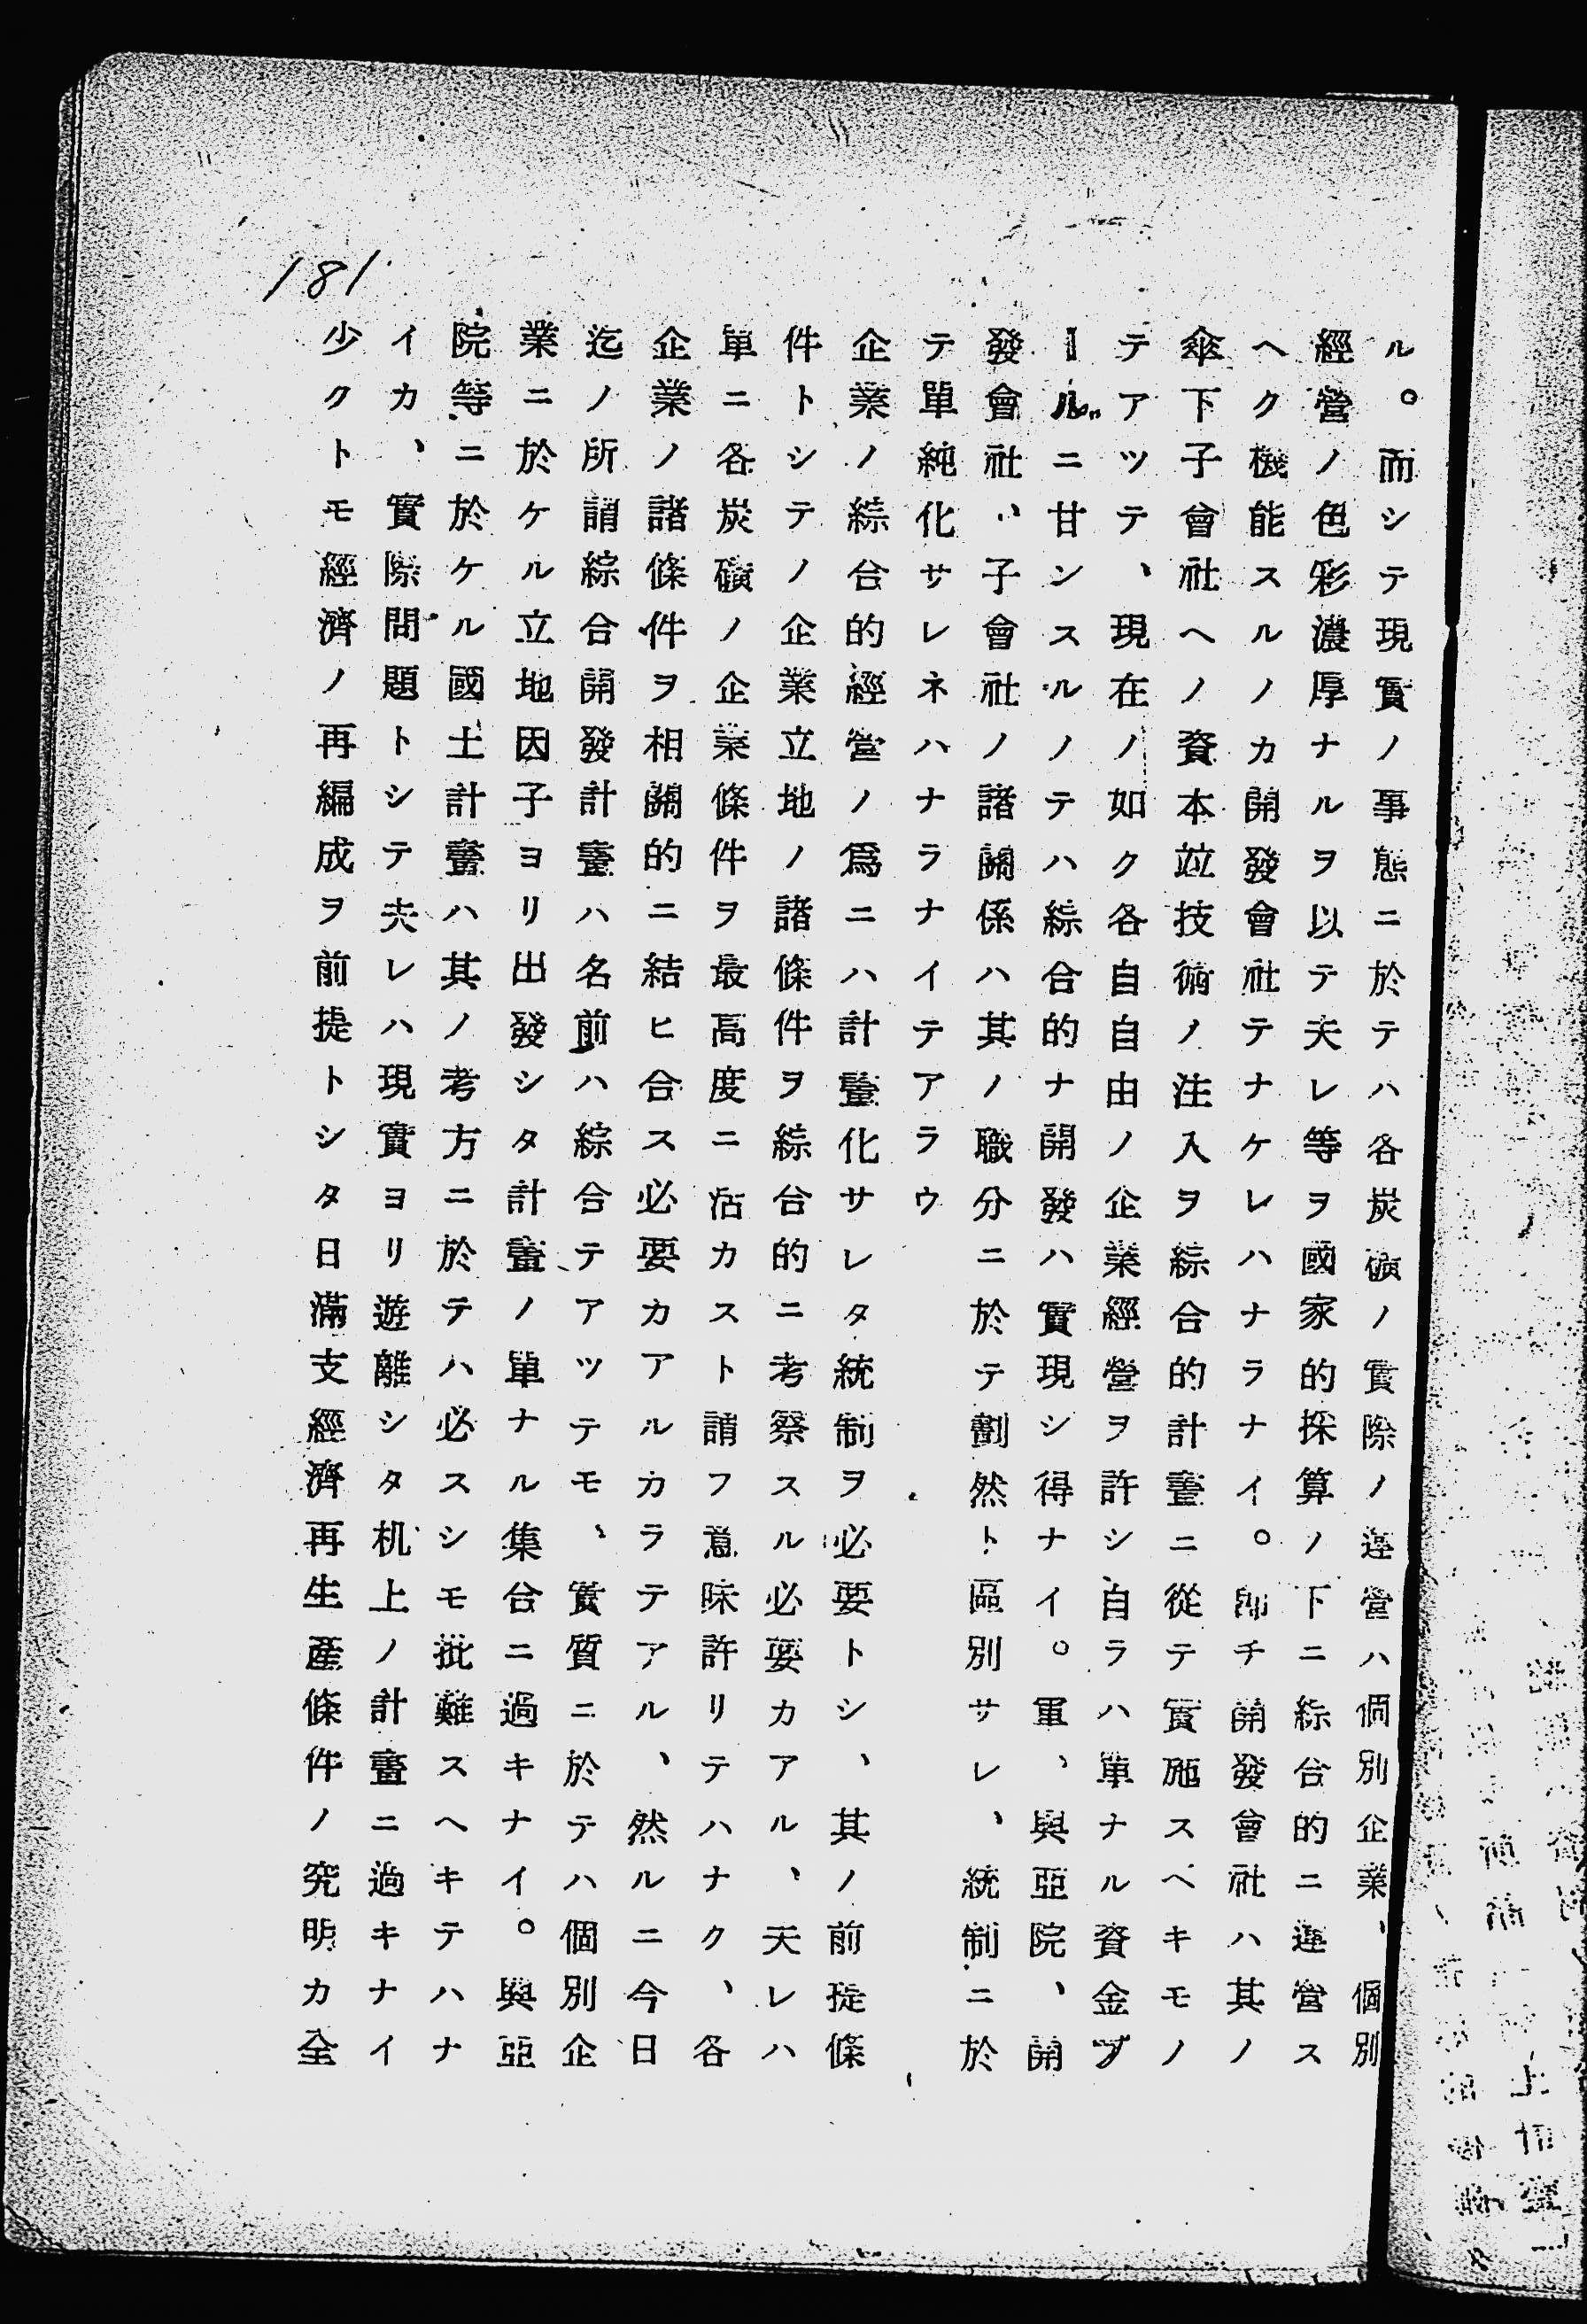 181
ル。而シテ現實ノ事態ニ於テハ各炭礦ノ實際ノ運營ハ個別企業、個別
經營ノ色彩濃厚ナルヲ以テ夫レ等ヲ國家的採算ノ下ニ綜合的ニ運營ス
ヘク機能スルノカ開發會社テナケレハナラナイ。卽チ開發會社ハ其ノ
傘下子會社ヘノ資本竝技術ノ注入ヲ綜合的計畫ニ從テ實施スヘキモノ
テアツテ、現在ノ如ク各自自由ノ企業經營ヲ許シ自ラハ單ナル資金プ
ールニ甘ンスルノテハ綜合的ナ開發ハ實現シ得ナイ。軍、與亞院、開
發會社、子會社ノ諸關係ハ其ノ職分ニ於テ劃然ト區別サレ、統制ニ於
テ單純化サレネハナラナイテアラウ
企業ノ綜合的經營ノ爲ニハ計畫化サレタ統制ヲ必要トシ、其ノ前提條
件トシテノ企業立地ノ諸條件ヲ綜合的ニ考察スル必要カアル、夫レハ
單ニ各炭礦ノ企業條件ヲ最高度ニ活カスト謂フ意味許リテハナク、各
企業ノ諸條件ヲ相關的ニ結ヒ合ス必要カアルカラテアル、然ルニ今日
迄ノ所謂綜合開發計畫ハ名前ハ綜合テアツテモ、實質ニ於テハ個別企
業ニ於ケル立地因子ヨリ出發シタ計畫ノ單ナル集合ニ過キナイ。與亞
院等ニ於ケル國土計畫ハ其ノ考方ニ於テハ必スシモ批難スヘキテハナ
イカ、實際問題トシテ夫レハ現實ヨリ遊離シタ机上ノ計畫ニ過キナイ
少クトモ經濟ノ再編成ヲ前提トシタ日滿支經濟再生產條件ノ究明カ全